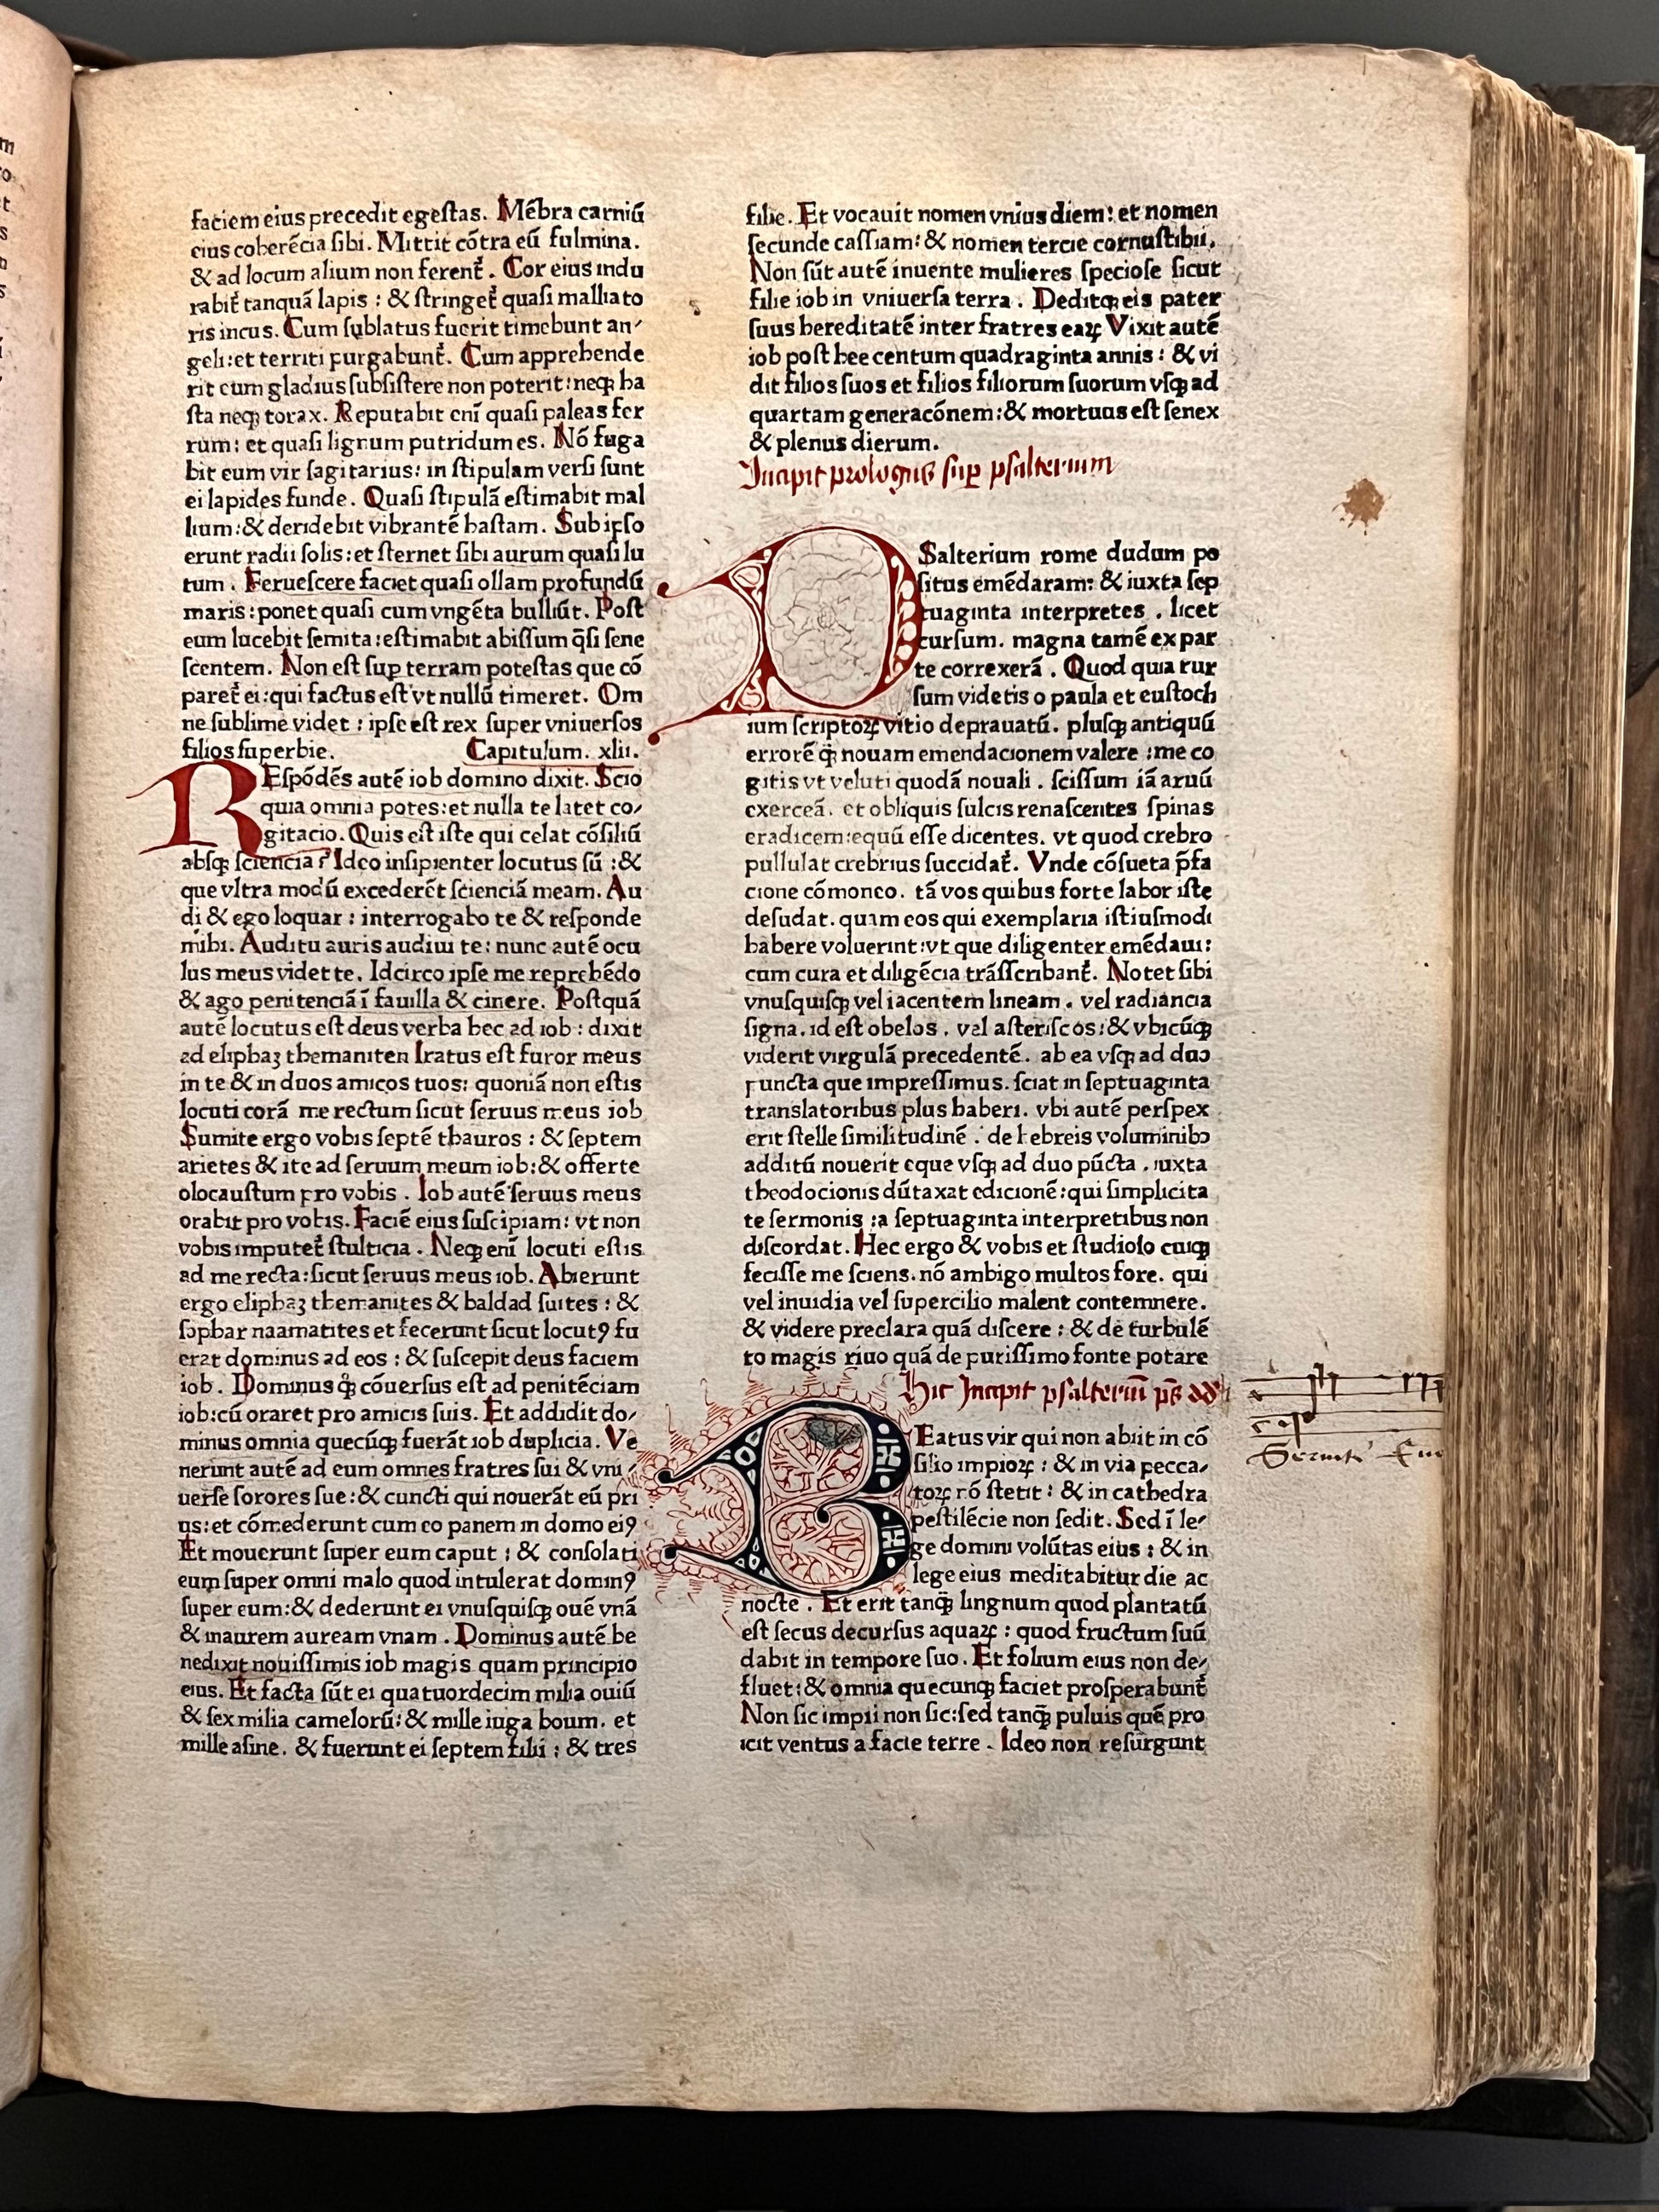 faciem eius precedit egestas. Mēbra carniū
eius coherēcia sibi. Mittit cōtra eū fulmina.
& ad locum alium non ferent̄. Cor eius indu
rabit̄ tanquā lapis : & stringet̄ quasi malliato
ris incus. Cum sublatus fuerit timebunt an⸗
geli:et territi purgabunt̄. Cum apprehende
rit eum gladius subsistere non poterit:neqꝫ ha
sta neqꝫ torax. Reputabit eni̅ quasi paleas fer
rum: et quasi lignum putridum es. Nō fuga
bit eum vir sagitarius: in stipulam versi sunt
ei lapides funde. Quasi stipulā estimabit mal
lium:& deridebit vibrantē hastam. Sub ipso
erunt radii solis:et sternet sibi aurum quasi lu
tum. Feruescere faciet quasi ollam profundū
maris:ponet quasi cum vngēta bulliūt. Post
eum lucebit semita:estimabit abissum q̄si sene
scentem. Non est sup terram potestas que cō
paret̄ ei:qui factus est vt nullū timeret. Om
ne sublime videt : ipse est rex super vniuersos
filios superbie. Capitulum. xlii.
REspōdēs autē iob domino dixit. Scio
quia omnia potes:et nulla te latet co⸗
gitacio. Quis est iste qui celat cōsiliū
absqꝫ sciencia? Ideo insipienter locutus sū :&
que vltra modū excederēt scienciā meam. Au
di & ego loquar : interrogabo te & responde
mihi. Auditu auris audiui te: nunc autē ocu
lus meus videt te. Idcirco ipse me reprehēdo
& ago penitenciā ī fauilla & cinere. Postquā
autē locutus est deus verba hec ad iob : dixit
ad eliphaz themaniten Iratus est furor meus
in te & in duos amicos tuos: quoniā non estis
locuti corā me rectum sicut seruus meus iob
Sumite ergo vobis septē thauros : & septem
arietes & ite ad seruum meum iob:& offerte
olocaustum pro vobis. Iob autē seruus meus
orabit pro vobis. Faciē eius suscipiam: vt non
vobis imputet̄ stulticia. Neqꝫ eni̅ locuti estis
ad me recta:sicut seruus meus iob. Abierunt
ergo eliphaz themanites & baldad suites : &
sophar naamatites et fecerunt sicut locutꝰ fu
erat dominus ad eos : & suscepit deus faciem
iob. Dominus qꝫ cōuersus est ad penitēciam
iob:cū oraret pro amicis suis. Et addidit do⸗
minus omnia quecūqꝫ fuerāt iob duplicia. Ve
nerunt autē ad eum omnes fratres sui & vni
uerse sorores sue:& cuncti qui nouerāt eū pri
us:et cōmederunt cum eo panem in domo eiꝰ
Et mouerunt super eum caput : & consolati
eum super omni malo quod intulerat dominꝰ
super eum:& dederunt ei vnusquisqꝫ ouē vnā
& inaurem auream vnam. Dominus autē be
nedixit nouissimis iob magis quam principio
eius. Et facta sūt ei quatuordecim milia ouiū
& sex milia camelorū:& mille iuga boum. et
mille asine. & fuerunt ei septem filii : & tres
filie. Et vocauit nomen vnius diem: et nomen
secunde cassiam:& nomen tercie cornustibii.
Non sūt autē inuente mulieres speciose sicut
filie iob in vniuersa terra. Deditqꝫ eis pater
suus hereditatē inter fratres eaꝝ Vixit autē
iob post hec centum quadraginta annis : & vi
dit filios suos et filios filiorum suorum vsqꝫ ad
quartam generacōnem:& mortuus est senex
& plenus dierum.
Incipit prologus sup psalterium
PSalterium rome dudum po
situs emēdaram: & iuxta sep
tuaginta interpretes. licet
cursum. magna tamē ex par
te correxerā. Quod quia rur
sum videtis o paula et eustoch
ium scriptoꝝ vitio deprauatū. plusqꝫ antiquū
errorē q̄ nouam emendacionem valere :me co
gitis vt veluti quodā nouali. scissum iā aruū
exerceā. et obliquis sulcis renascentes spinas
eradicem:equū esse dicentes. vt quod crebro
pullulat crebrius succidat̄. Vnde cōsueta p̄fa
cione cōmoneo. tā vos quibus forte labor iste
desudat. quam eos qui exemplaria istiusmodi
habere voluerint:vt que diligenter emēdaui:
cum cura et diligēcia trāsscribant̄. Notet sibi
vnusquisqꝫ vel iacentem lineam. vel radiancia
signa. id est obelos. vel asteriscos:& vbicūqꝫ
viderit virgulā precedentē. ab ea vsqꝫ ad duo
puncta que impressimus. sciat in septuaginta
translatoribus plus haberi. vbi autē perspex
erit stelle similitudinē. de hebreis voluminibꝰ
additū nouerit eque vsqꝫ ad duo pūcta. iuxta
theodocionis dūtaxat edicionē:qui simplicita
te sermonis :a septuaginta interpretibus non
discordat. Hec ergo & vobis et studioso cuiqꝫ
fecisse me sciens. nō ambigo multos fore. qui
vel inuidia vel supercilio malent contemnere.
& videre preclara quā discere : & de turbulē
to magis riuo quā de purissimo fonte potare
Hic Incipit psalteriū
BEatus vir qui non abiit in cō
silio impioꝝ : & in via pecca⸗
toꝝ nō stetit : & in cathedra
pestilēcie non sedit. Sed ī le⸗
ge domini volūtas eius : & in
lege eius meditabitur die ac
nocte. Et erit tanqꝫ lingnum quod plantatū
est secus decursus aquaꝝ : quod fructum suū
dabit in tempore suo. Et folium eius non de⸗
fluet:& omnia quecunqꝫ faciet prosperabunt̄
Non sic impii non sic:sed tanqꝫ puluis quē pro
icit ventus a facie terre. Ideo non resurgunt